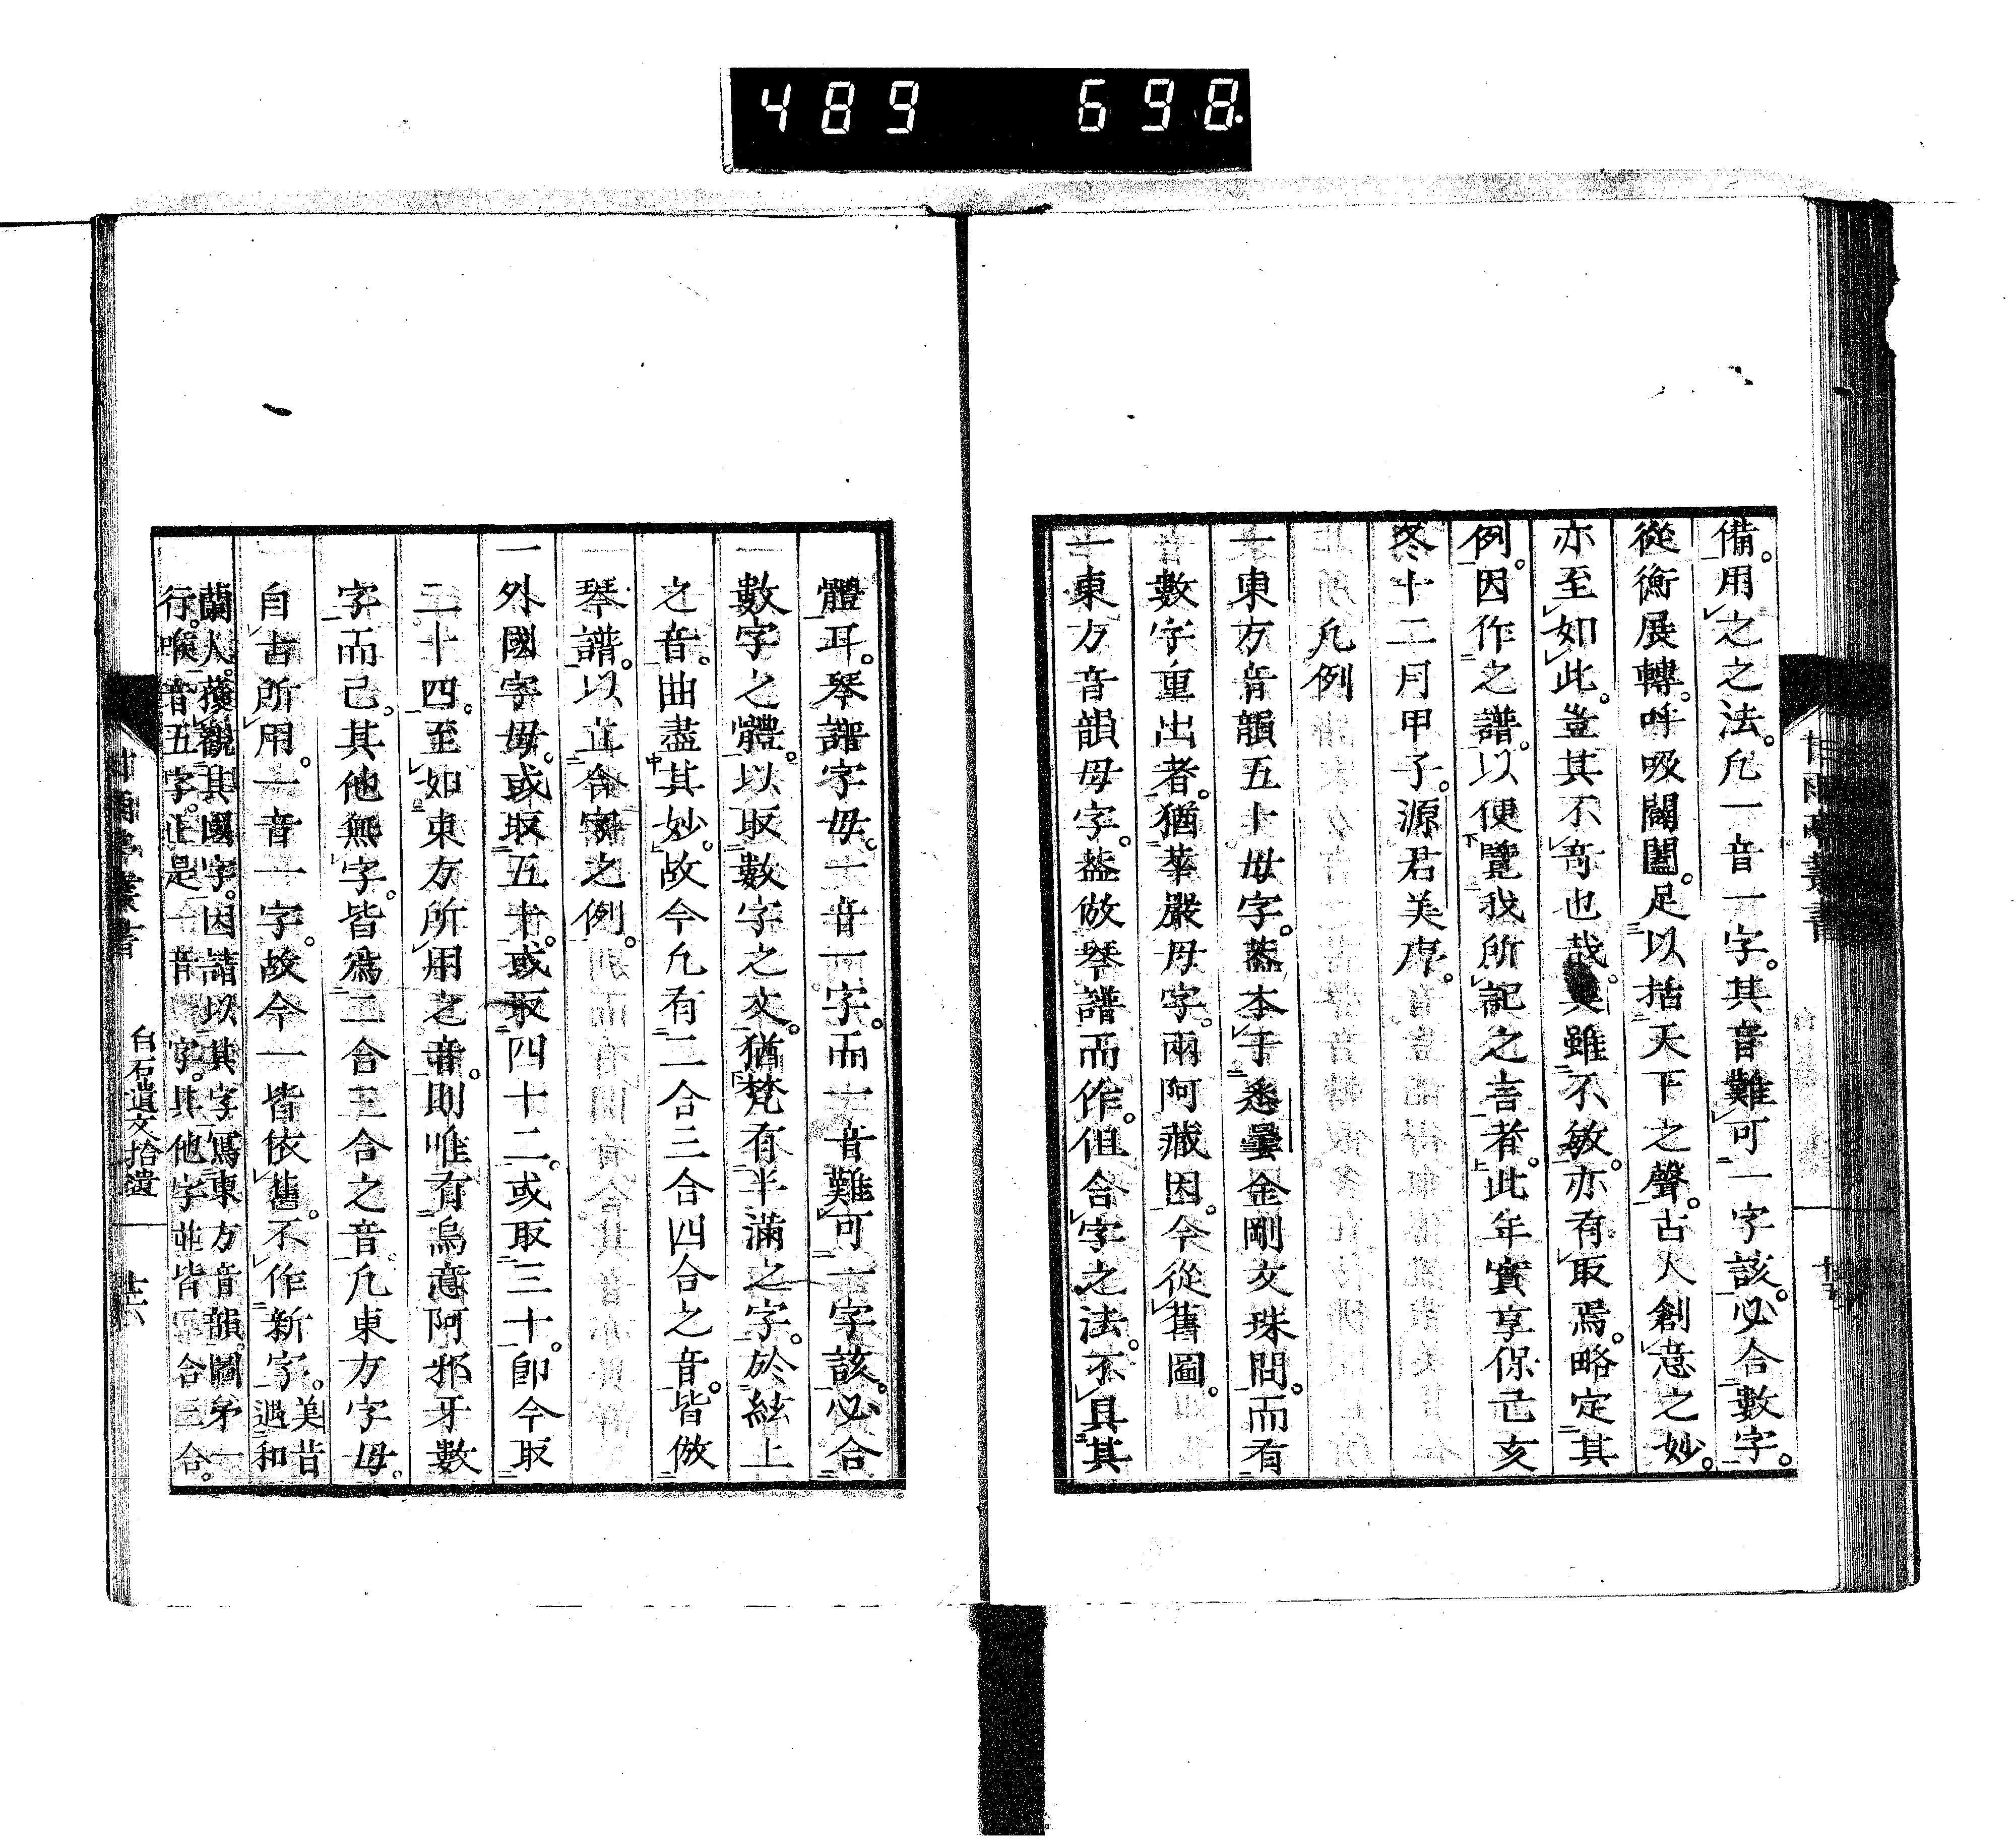 489 698.
備。用之之法。凡一音一字。其音難可一字該。必合數字。
從衡展轉。呼吸闔闢。足以括天下之聲。古人創意之妙。
亦至如此。豈其不奇也哉。美雖不敏。亦有取焉。略定其
例。因作之譜。以便覽我所記之言者。此年實享保己亥
冬十二月甲子。源君美序。
凡例
一東方音韻五十母字。蓋本于悉曇金剛文珠問。而有
數字重出者。猶華嚴母字。兩阿藏因。今從舊圖。
一東方音韻母字。蓋倣琴譜而作。但合字之法。不具其
體耳。琴譜字母。一音一字。而一音難可一字該。必合
數字之體。以取數字之文。猶梵有半滿之字。於絃上
之音。曲盡其妙。故今凡有二合三合四合之音。皆倣
琴譜。以立合字之例。
一外國字母。或取五十。或取四十二。或取三十。卽今取
二十四。至如東方所用之音。則唯有烏意阿邪牙數
字而已。其他無字。皆爲二合三合之音。凡東方字母。
自古所用。一音一字。故今一皆依舊。不作新字。美昔遇和
蘭人。獲觀其國字。因請以其字寫東方音韻圖。第一
行。喉音五字。正是一音一字。其他字並皆二合三合。
白石遺文拾遺
十六